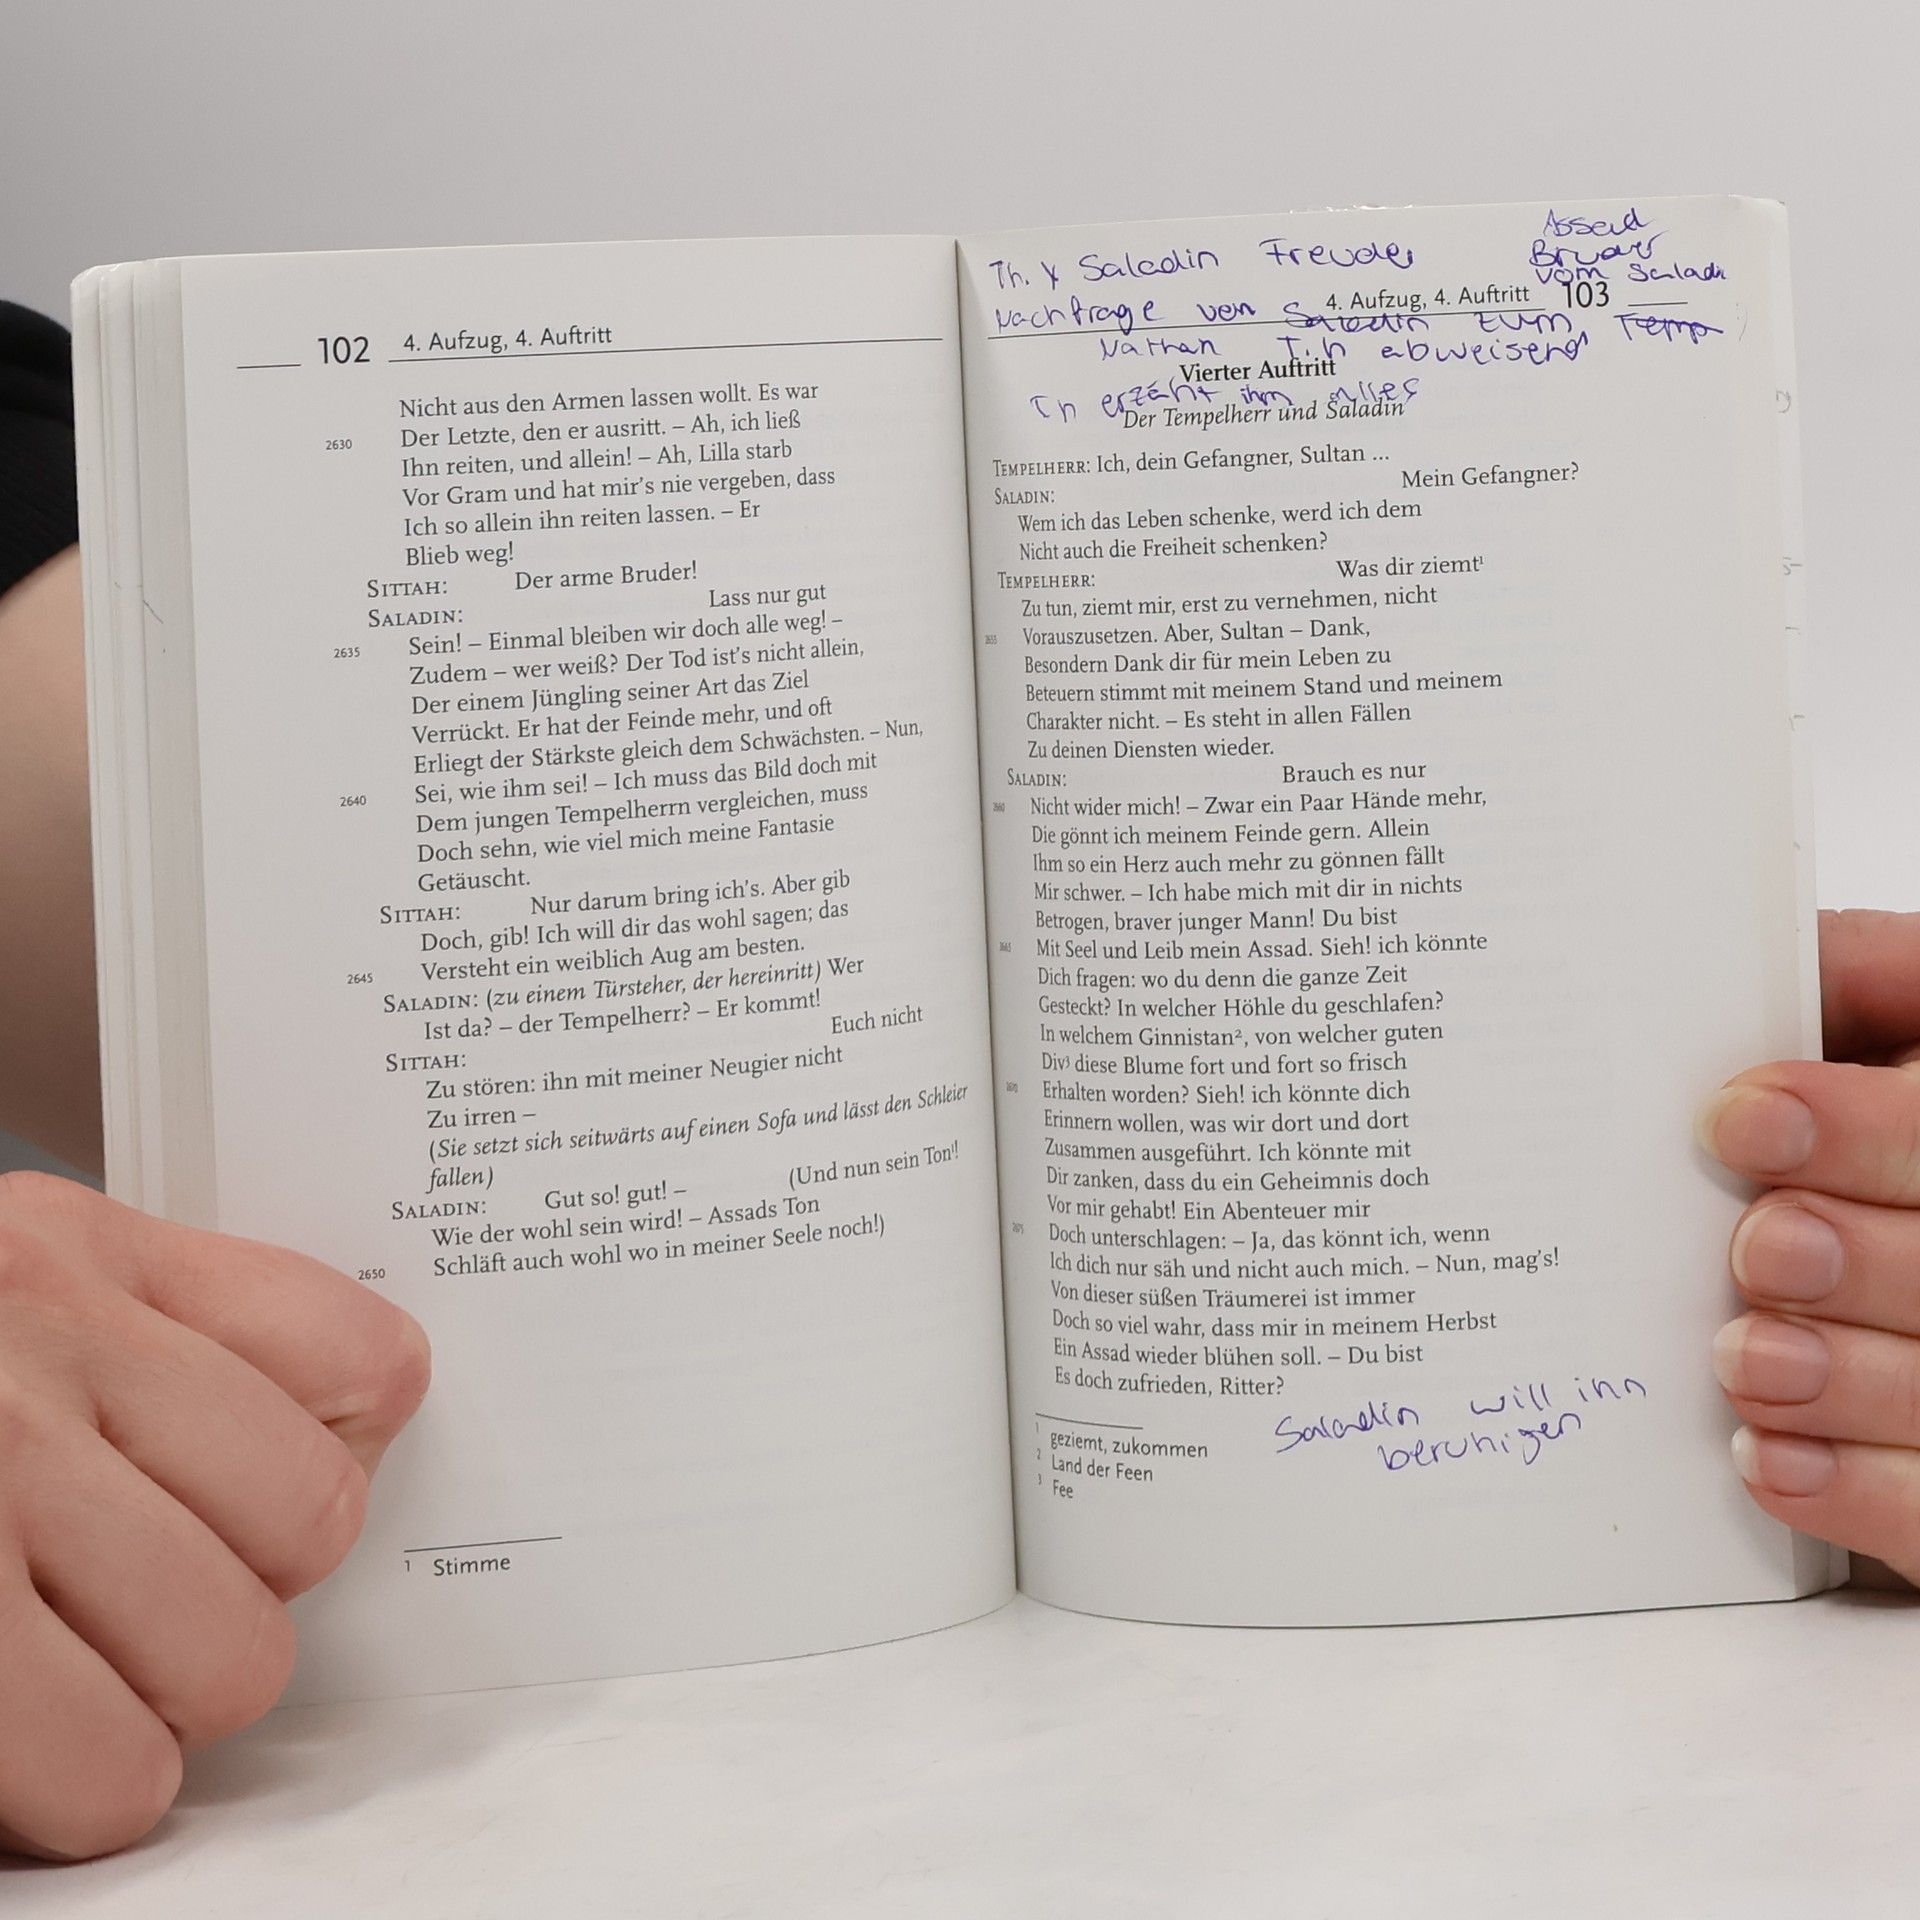 102 4. Aufzug, 4. Auftritt
Nicht aus den Armen lassen wollt. Es war
2630 Der Letzte, den er ausritt. – Ah, ich ließ
Ihn reiten, und allein! – Ah, Lilla starb
Vor Gram und hat mir's nie vergeben, dass
Ich so allein ihn reiten lassen. – Er
Blieb weg!
SITTAH: Der arme Bruder!
SALADIN: Lass nur gut
2635 Sein! – Einmal bleiben wir doch alle weg! –
Zudem – wer weiß? Der Tod ist's nicht allein,
Der einem Jüngling seiner Art das Ziel
Verrückt. Er hat der Feinde mehr, und oft
Erliegt der Stärkste gleich dem Schwächsten. – Nun,
2640 Sei, wie ihm sei! – Ich muss das Bild doch mit
Dem jungen Tempelherrn vergleichen, muss
Doch sehn, wie viel mich meine Fantasie
Getäuscht.
SITTAH: Nur darum bring ich's. Aber gib
Doch, gib! Ich will dir das wohl sagen; das
2645 Versteht ein weiblich Aug am besten.
SALADIN: (zu einem Türsteher, der hereinritt) Wer
Ist da? – der Tempelherr? – Er kommt!
SITTAH: Euch nicht
Zu stören: ihn mit meiner Neugier nicht
Zu irren –
(Sie setzt sich seitwärts auf einen Sofa und lässt den Schleier
fallen)
SALADIN: Gut so! gut! – (Und nun sein Ton¹!
Wie der wohl sein wird! – Assads Ton
2650 Schläft auch wohl wo in meiner Seele noch!)
1 Stimme
Assad
Bruder
vom Saladi
Th. x Saladin Freude
4. Aufzug, 4. Auftritt 103
Nachfrage von Saladin zum Temp
Nathan T.h abweisend
Vierter Auftritt
Th erzäht ihm alles
Der Tempelherr und Saladin
TEMPELHERR: Ich, dein Gefangner, Sultan ...
SALADIN: Mein Gefangner?
Wem ich das Leben schenke, werd ich dem
Nicht auch die Freiheit schenken?
TEMPELHERR: Was dir ziemt¹
Zu tun, ziemt mir, erst zu vernehmen, nicht
2655 Vorauszusetzen. Aber, Sultan – Dank,
Besondern Dank dir für mein Leben zu
Beteuern stimmt mit meinem Stand und meinem
Charakter nicht. – Es steht in allen Fällen
Zu deinen Diensten wieder.
SALADIN: Brauch es nur
2660 Nicht wider mich! – Zwar ein Paar Hände mehr,
Die gönnt ich meinem Feinde gern. Allein
Ihm so ein Herz auch mehr zu gönnen fällt
Mir schwer. – Ich habe mich mit dir in nichts
Betrogen, braver junger Mann! Du bist
2665 Mit Seel und Leib mein Assad. Sieh! ich könnte
Dich fragen: wo du denn die ganze Zeit
Gesteckt? In welcher Höhle du geschlafen?
In welchem Ginnistan², von welcher guten
Div³ diese Blume fort und fort so frisch
2670 Erhalten worden? Sieh! ich könnte dich
Erinnern wollen, was wir dort und dort
Zusammen ausgeführt. Ich könnte mit
Dir zanken, dass du ein Geheimnis doch
Vor mir gehabt! Ein Abenteuer mir
2675 Doch unterschlagen: – Ja, das könnt ich, wenn
Ich dich nur säh und nicht auch mich. – Nun, mag's!
Von dieser süßen Träumerei ist immer
Doch so viel wahr, dass mir in meinem Herbst
Ein Assad wieder blühen soll. – Du bist
Es doch zufrieden, Ritter?
Saladin will ihn
beruhigen
1 geziemt, zukommen
2 Land der Feen
3 Fee